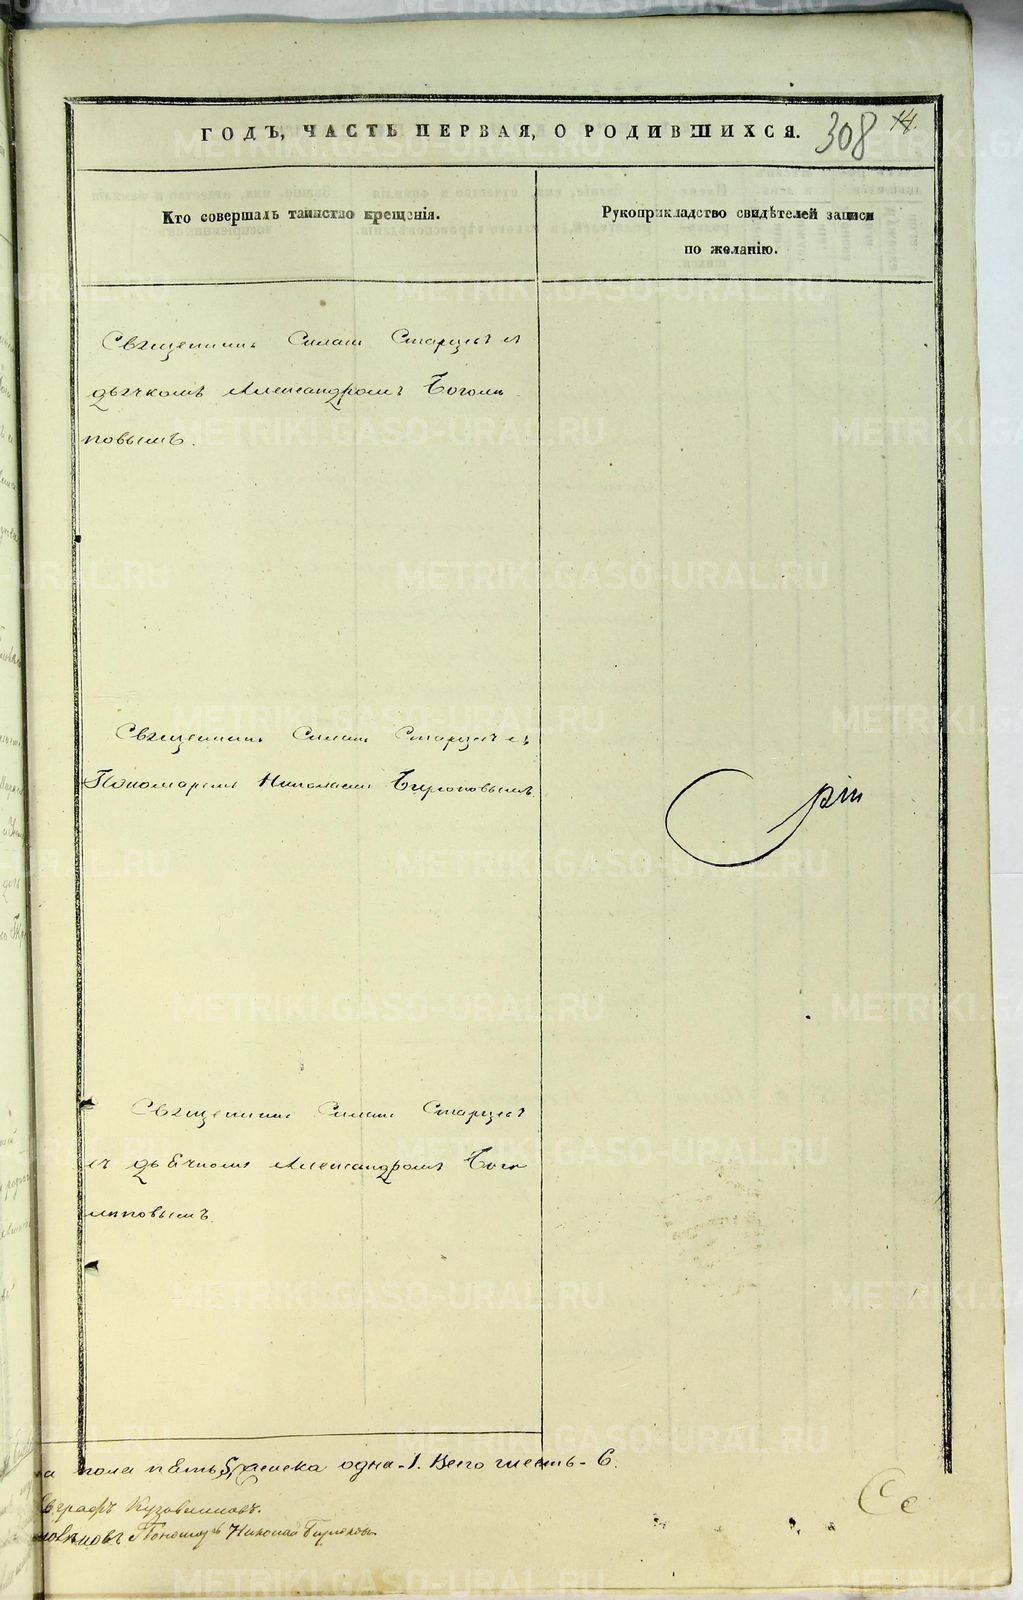 ГОДЪ, ЧАСТЬ ПЕРВАЯ, О РОДИВШИХСЯ.
308 14.
Кто совершалъ таинство крещенія.
Рукоприкладство свидѣтелей записи
по желанію.
Священникъ Симонъ Старцевъ съ
дьячкомъ Александромъ Боголѣ
повымъ.
Священникъ Симонъ Старцевъ съ
Пономаремъ Николаемъ Бирюковымъ.
Священникъ Симонъ Старцевъ
съ дьячкомъ Александромъ Бого
лѣповымъ.
пола пять 5, женска одна - 1. Всего шесть - 6.
Николай Бирюковъ
METRIKI.GASO-URAL.RU